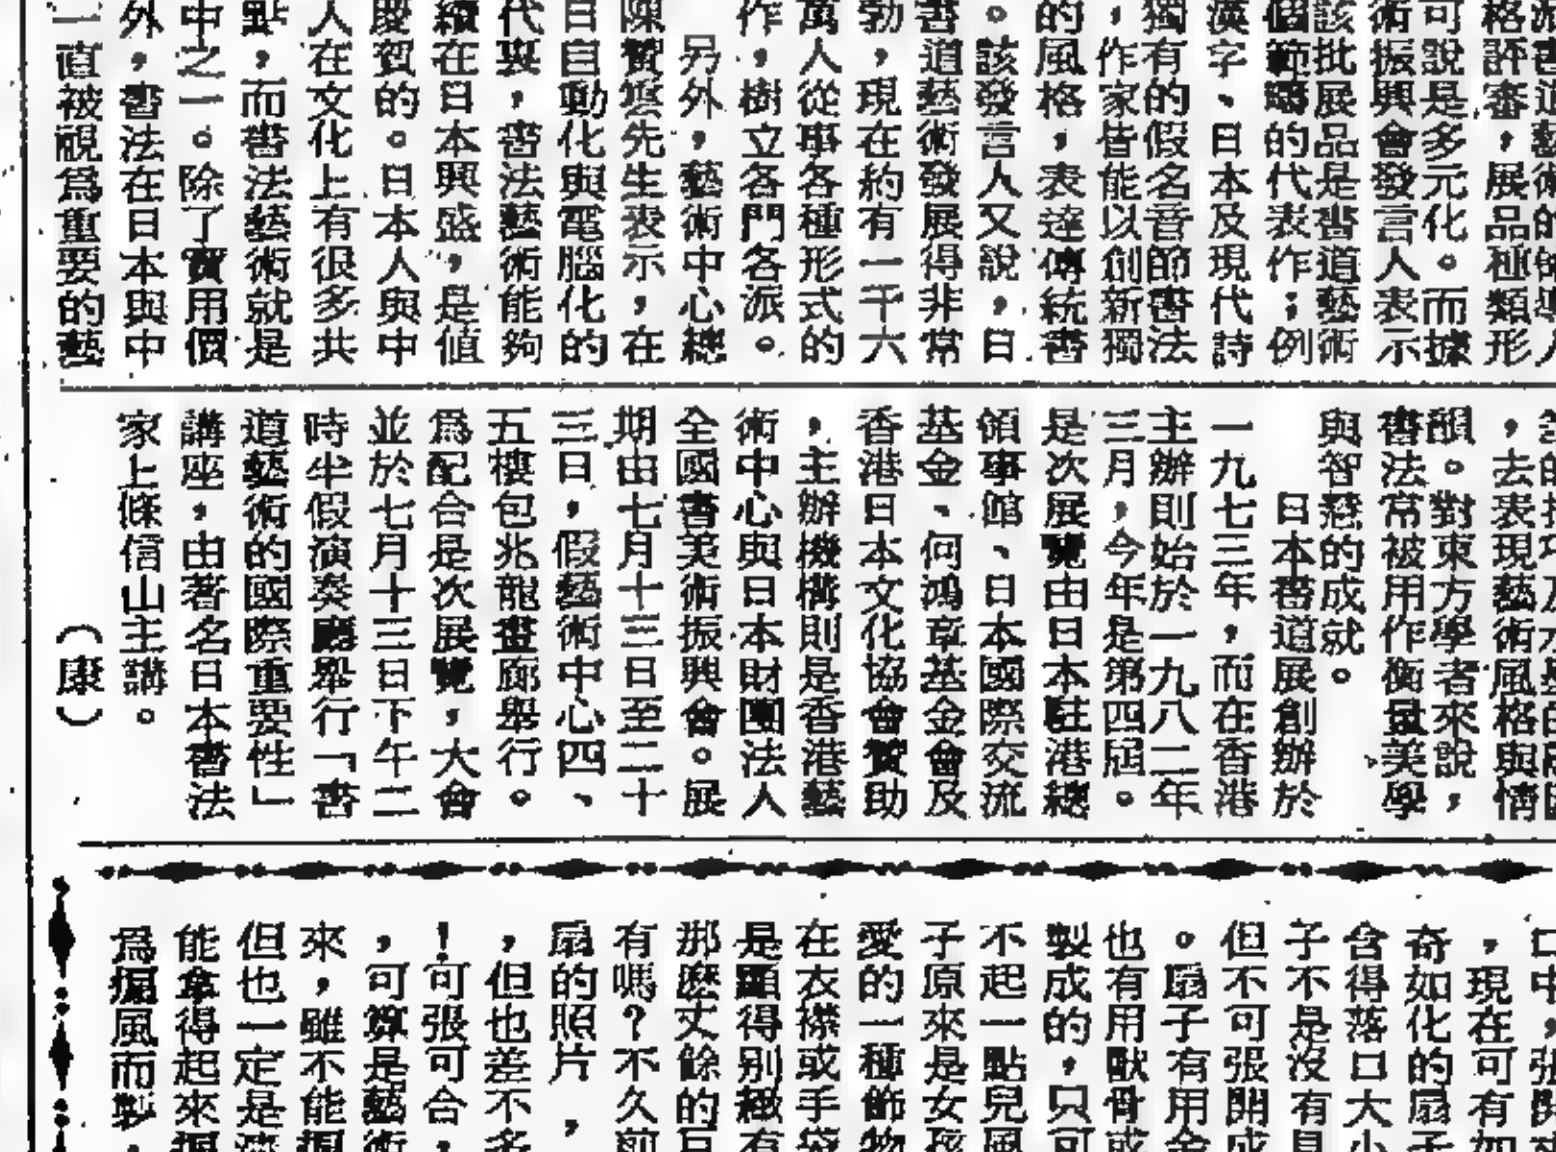 書道藝術的領導人
格評審，展品種類形
可說是多元化。而據
術振興會發言人表示
該批展品是書道藝術
個範疇的代表作；例
漢字、日本及現代詩
獨有的假名音節書法
，作家皆能以創新獨
的風格，表達傳統書
。該發言人又說，日
書道藝術發展得非常
勃，現在約有一千六
萬人從事各種形式的
作，樹立各門各派。
另外，藝術中心總
陳贊雲先生表示，在
日自動化與電腦化的
代裏，書法藝術能夠
續在日本興盛，是值
慶賀的。日本人與中
人在文化上有很多共
點，而書法藝術就是
中之一。除了實用價
外，書法在日本與中
一直被視爲重要的藝
的技巧及水墨的
，去表現藝術風格與情
韻。對東方學者來說，
書法常被用作衡量美學
與智慧的成就。
日本書道展創辦於
一九七三年，而在香港
主辦則始於一九八二年
三月，今年是第四屆。
是次展覽由日本駐港總
領事館、日本國際交流
基金、何鴻章基金會及
香港日本文化協會贊助
，主辦機構則是香港藝
術中心與日本財團法人
全國書美術振興會。展
期由七月十三日至二十
三日，假藝術中心四、
五樓包兆龍畫廊舉行。
爲配合是次展覽，大會
並於七月十三日下午二
時半假演奏廳舉行「書
道藝術的國際重要性」
講座，由著名日本書法
家上條信山主講。
（康）
口中，張開
，現在可有如
奇如化的扇子
含得落口大小
子不是沒有見
但不可張開成
。扇子有用金
也有用獸骨或
製成的，只可
不起一點兒風
子原來是女孩
愛的一種飾物
在衣襟或手袋
是顯得別緻有
那麽丈餘的巨
有嗎？不久前
扇的照片，
，但也差不多
！可張可合，
，可算是藝術
來，雖不能搧
但也一定是
能拿得起來搧
爲搧風而製，